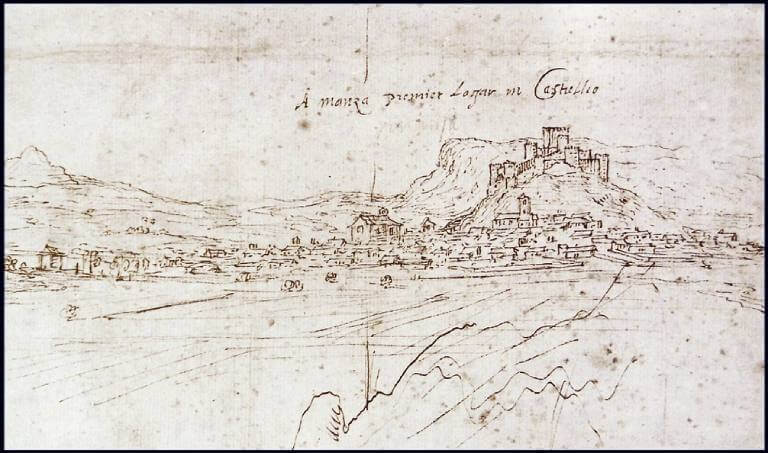 A manza premier Logar in Castiello